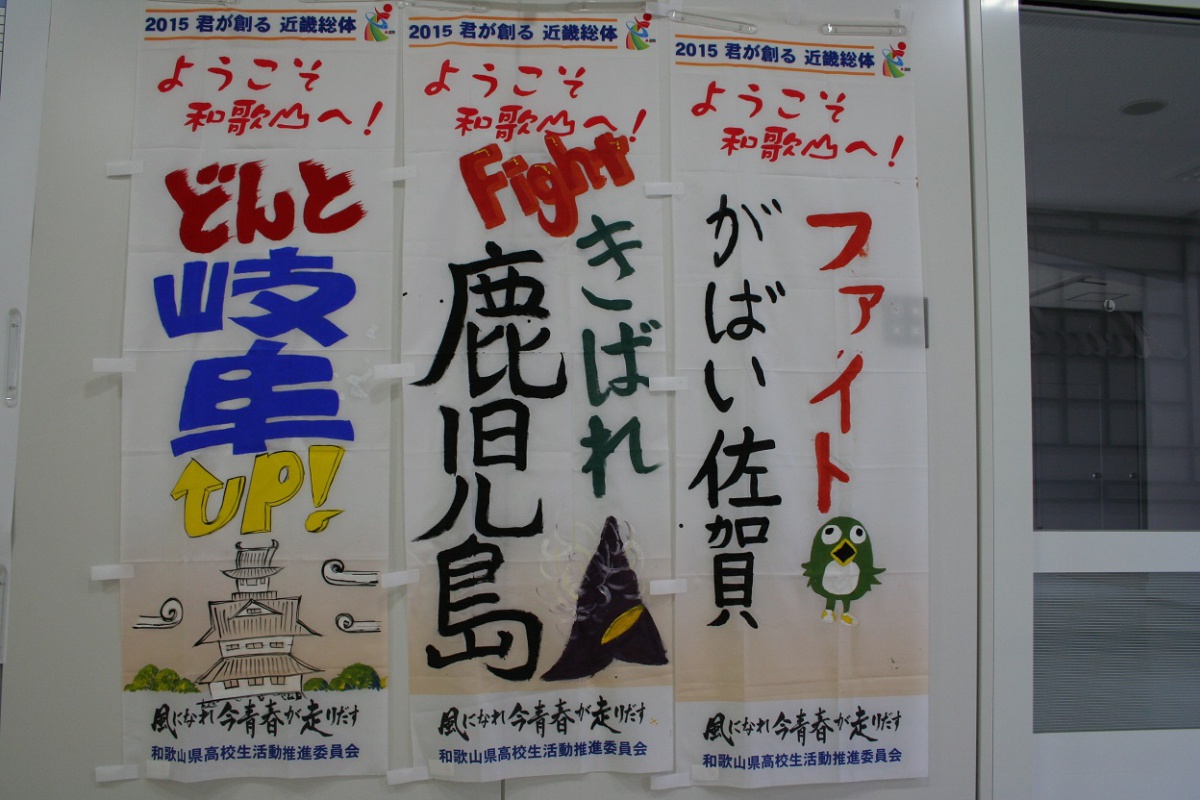 2015 君が創る 近畿総体
ようこそ
和歌山へ!
どんと
岐阜
UP!
風になれ今青春が走りだす
和歌山県高校生活動推進委員会
2015 君が創る 近畿総体
ようこそ
和歌山へ!
Fight
きばれ
鹿児島
風になれ今青春が走りだす
和歌山県高校生活動推進委員会
2015 君が創る 近畿総体
ようこそ
和歌山へ!
ファイト
がばい佐賀
風になれ今青春が走りだす
和歌山県高校生活動推進委員会